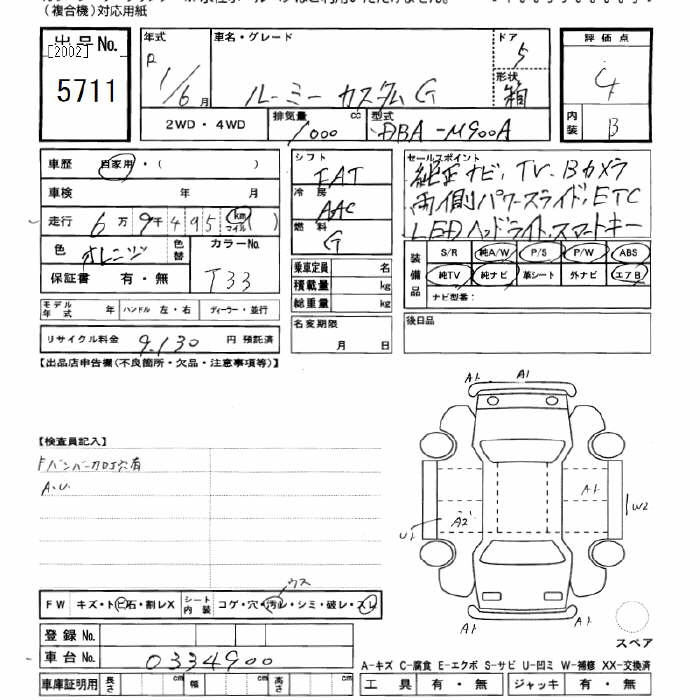 (複合機)対応用紙
出品No. [2002] 5711
年式 R 1/6月
車名・グレード ルーミー カスタムG
ドア 5
形状 箱
評価点 4
内装 B
2WD・4WD
排気量 1000 cc
型式 DBA-M900A
車歴 自家用・( )
車検 年 月
走行 6万9千495(km マイル)
色 オレンジ
色替
カラーNo. T33
保証書 有・無
モデル年式 年
ハンドル 左・右
ディーラー・並行
リサイクル料金 9,130 円 預託済
シフト FAT
冷房 AAC
燃料 G
乗車定員 名
積載量 kg
総重量 kg
名変期限 月 日
セールスポイント
純正ナビ, TV, Bカメラ
両側パワースライド, ETC
LEDヘッドライト, スマートキー
装備品
S/R 純A/W P/S P/W ABS
純TV 純ナビ 革シート 外ナビ エアB
ナビ型番:
後日品
【出品店申告欄(不良箇所・欠品・注意事項等)】
【検査員記入】
A.U.
A1 A1
A1
W2
U1 A2
A1
スペア
ウス
FW キズ・トビ石・割レX
シート内装 コゲ・穴・汚レ・シミ・破レ・スレ
登録No.
車台No. 0334900
車庫証明用 長さ cm 幅 cm 高さ cm
A-キズ C-腐食 E-エクボ S-サビ U-凹ミ W-補修 XX-交換済
工具 有・無 ジャッキ 有・無